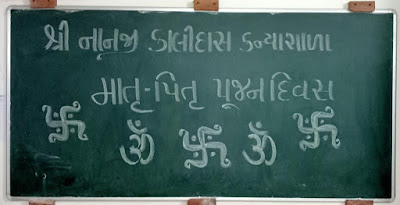 શ્રી નાનજી કાલીદાસ કન્યાશાળા
માતૃ-પિતૃ પૂજન દિવસ
卐 ૐ 卐 ૐ 卐